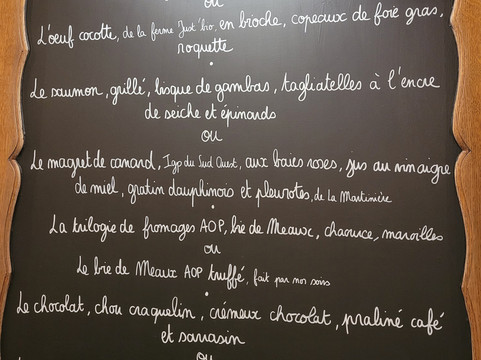 ou
L'oeuf cocotte, de la ferme Just'bro, en brioche, copeaux de foie gras,
roquette
Le saumon, grillé, bisque de gambas, tagliatelles à l'encre
de seiche et épinards
ou
Le magret de canard, Igp du Sud Ouest, aux baies roses, jus au vinaigre
de miel, gratin dauphinois et pleurotes, de la Martinière
La trilogie de fromages AOP, brie de Meaux, chaource, maroilles
ou
Le brie de Meaux AOP truffé, fait par nos soins
Le chocolat, chou craquelin, crémeux chocolat, praliné café
et sarrasin
ou